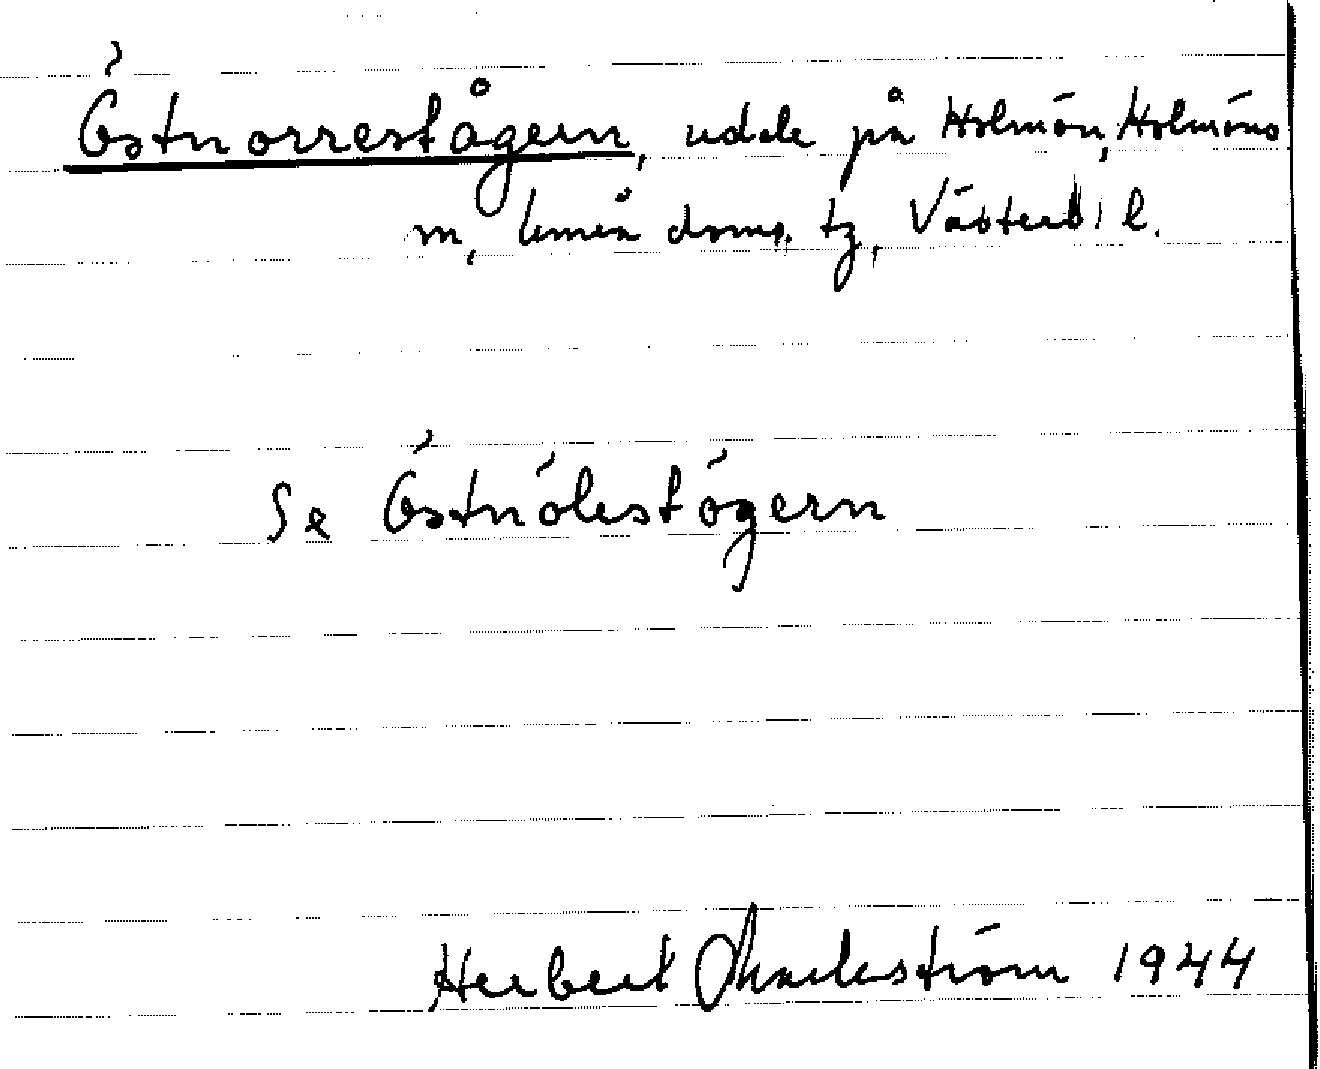 Östnorrestågern, udde på Holmön, Holmöns
m, Umeå doms. tz, Västerb. l.
Se Östnölestögern
Herbert Markström 1944